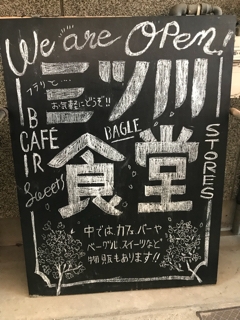 We are OPEN!
フラリと…
お気軽にどうぞ!!
三ツ川
BAR
CAFE
BAGLE
Sweets
食堂
STORES
中ではカフェバーや
ベーグル、スイーツなど
物販もあります!!